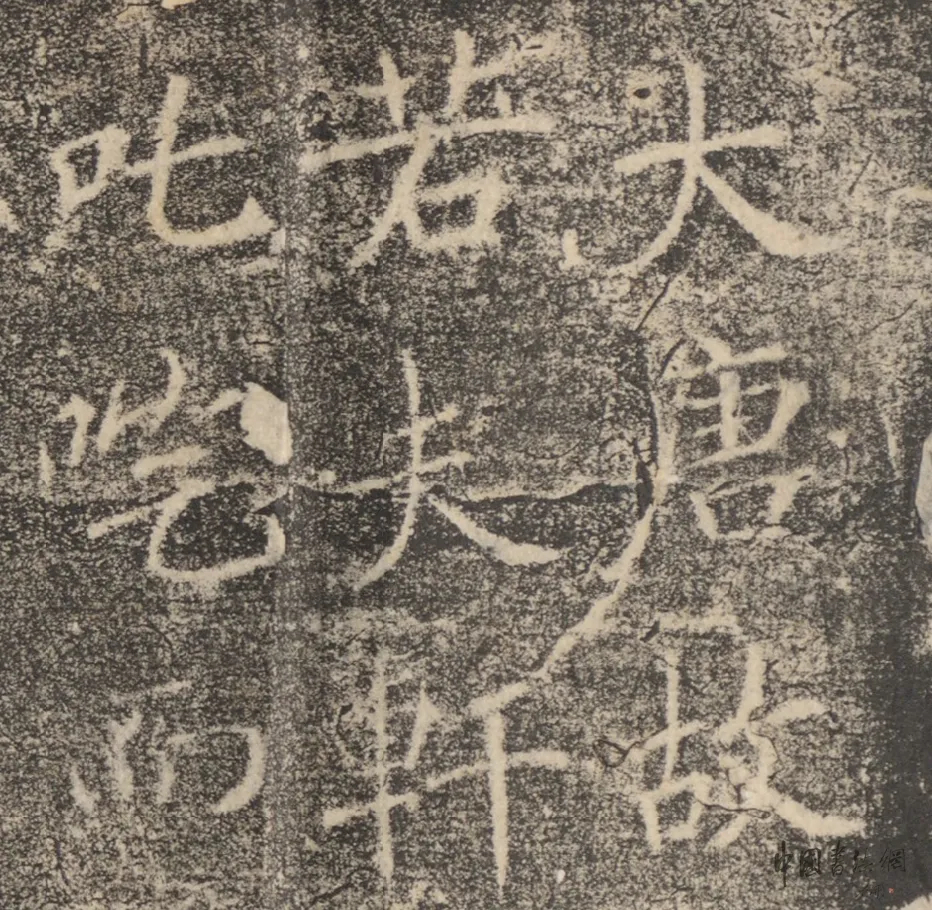 大唐故
若夫軒
叱咤而
中國書法網